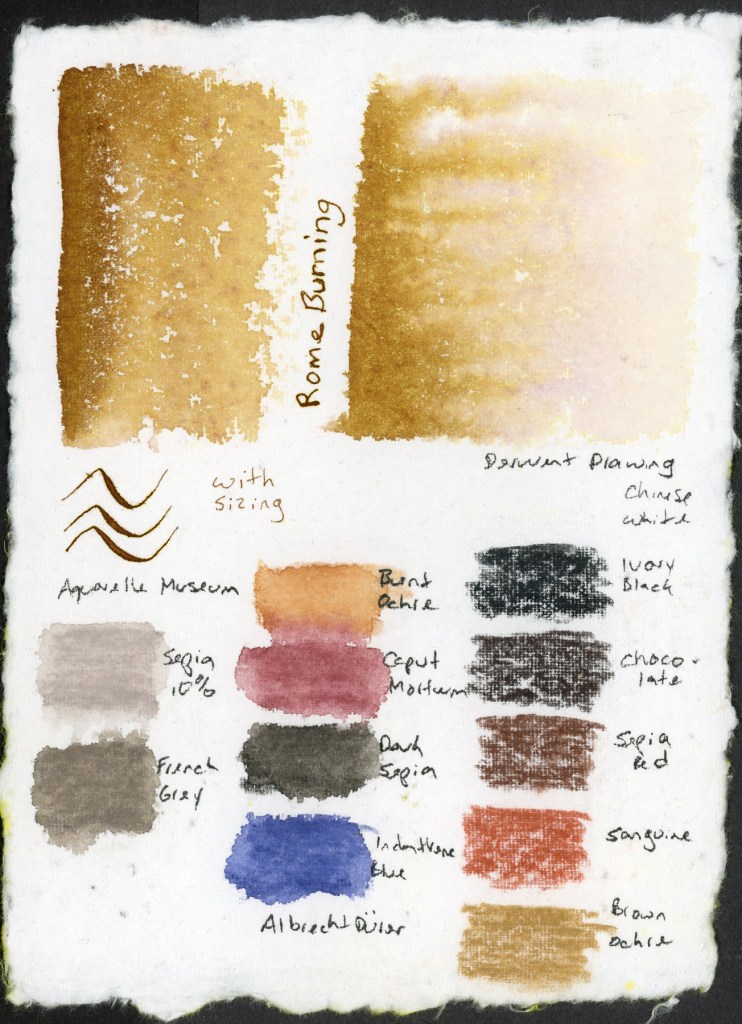 Rome Burning
with
sizing
Derwent Drawing
Chinese
white
Aquarelle Museum
Sepia
10%
French
Grey
Burnt
Ochre
Caput
Mortuum
Dark
Sepia
Indanthrene
Blue
Albrecht Dürer
Ivory
Black
Choco-
late
Sepia
Red
Sanguine
Brown
Ochre